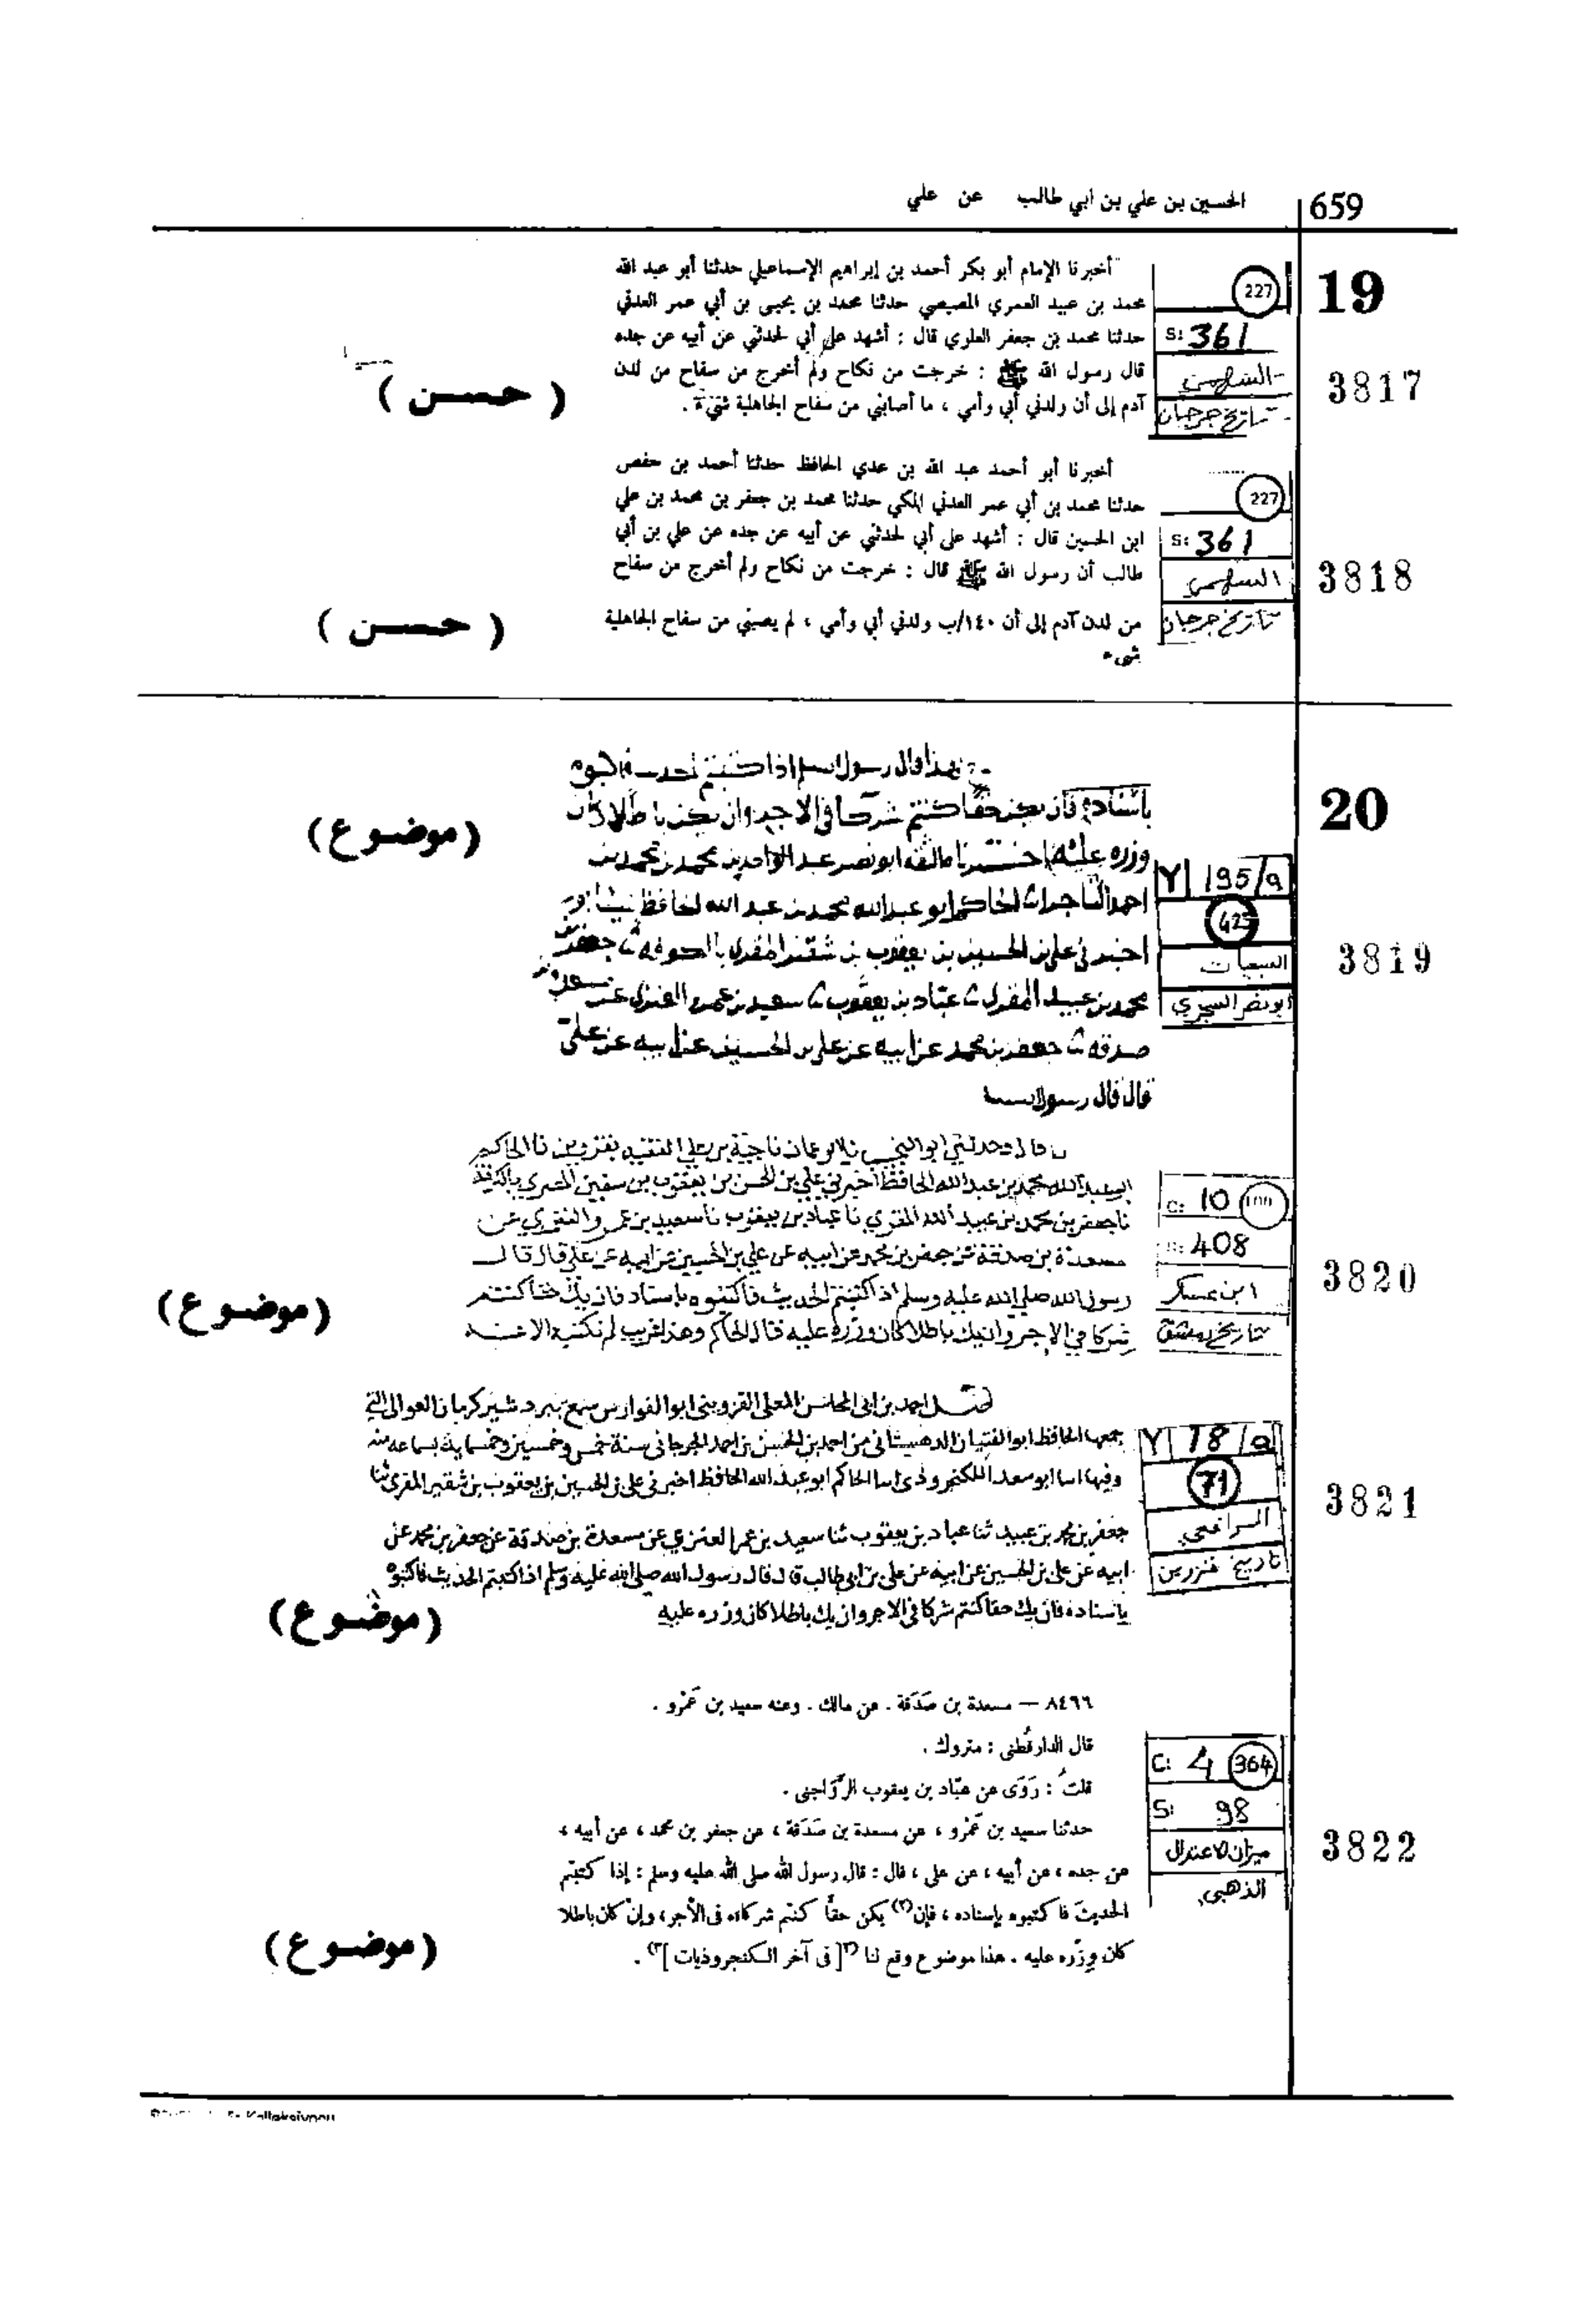 659
الحسين بن علي بن ابي طالب عن علي
19
227
S: 361
السهمي
تاريخ جرجان
3817
أخبرنا الإمام أبو بكر أحمد بن إبراهيم الإسماعيلي حدثنا أبو عبد الله
محمد بن عبيد العمري المصيصي حدثنا محمد بن يحيى بن أبي عمر العدني
حدثنا محمد بن جعفر العلوي قال : أشهد على أبي لحدثني عن أبيه عن جده
قال رسول الله ﷺ : خرجت من نكاح ولم أخرج من سفاح من لدن
آدم إلى أن ولدني أبي وأمي ، ما أصابني من سفاح الجاهلية شيء .
( حسن )
227
S: 361
السهمي
تاريخ جرجان
3818
أخبرنا أبو أحمد عبد الله بن عدي الحافظ حدثنا أحمد بن حفص
حدثنا محمد بن أبي عمر العدني المكي حدثنا محمد بن جعفر بن محمد بن علي
ابن الحسين قال : أشهد على أبي لحدثني عن أبيه عن جده عن علي بن أبي
طالب أن رسول الله ﷺ قال : خرجت من نكاح ولم أخرج من سفاح
من لدن آدم إلى أن ١٤٠/ب ولدني أبي وأمي ، لم يصبني من سفاح الجاهلية
شيء
( حسن )
20
Y 195/a
425
السبعيات
ابونصر السجزي
3819
قال رسول الله اذا كتبتم الحديث فاكتبوه
باسناده فان يكن حقا كنتم شركا في الاجر وان يكن باطلا كان
وزره عليه ابونصر عبد الواحد بن محمد بن محمد بن
احمد التاجر انا الحاكم ابو عبد الله محمد بن عبد الله الحافظ بنيسابور
اخبرني علي بن الحسين بن يعقوب بن شقير المقري بالكوفه ثنا جعفر بن
محمد بن عبيد المقري ثنا عباد بن يعقوب ثنا سعيد بن عمرو العنزي عن
صدقه ثنا جعفر بن محمد عن ابيه عن علي بن الحسين عن ابيه عن علي
قال قال رسول الله
(موضوع)
C: 10 100
S: 408
ابن عساكر
تاريخ دمشق
3820
قال وحدثني ناجية بن علي الفقيه بقزوين نا الحاكم
ابو عبد الله محمد بن عبد الله الحافظ اخبرني علي بن الحسن بن يعقوب بن سفين المصري بالكوفة
نا جعفر بن محمد بن عبيد الله المقري نا عباد بن يعقوب نا سعيد بن عمرو العنزي عن
مسعدة بن صدقة عن جعفر بن محمد عن ابيه عن علي بن الحسين عن ابيه عن علي قال قال
رسول الله صلي الله عليه وسلم اذا كتبتم الحديث فاكتبوه باسناد فان يك حقا كنتم
شركا في الاجر وان يك باطلا كان وزره عليه قال الحاكم وهذا غريب لم نكتبه الا عنه
(موضوع)
Y 18/a
71
الرافعي
تاريخ قزوين
3821
احمد بن ابي المحاسن المعلى القزويني ابو الفوارس سمع ببردشير كرمان العوالى التي
جمعها الحافظ ابو الفتيان الدهستاني من احمد بن الحسن بن احمد الجرجاني سنة خمس وخمسين وخمسمايه بسماعه منه
وفيها انبا ابو سعد الكنجروذي انبا الحاكم ابو عبد الله الحافظ اخبرني علي بن الحسين بن يعقوب بن شقير المقري ثنا
جعفر بن محمد بن عبيد ثنا عباد بن يعقوب ثنا سعيد بن عمر العنزي عن مسعدة بن صدقة عن جعفر بن محمد عن
ابيه عن علي بن الحسين عن ابيه عن علي بن ابي طالب قال قال رسول الله صلى الله عليه وسلم اذا كتبتم الحديث فاكتبوه
باسناده فان يك حقا كنتم شركا في الاجر وان يك باطلا كان وزره عليه
(موضوع)
C: 4 364
S: 98
ميزان الاعتدال
الذهبي
3822
٨٤٦٦ — مسعدة بن صَدَقة . عن مالك . وعنه سعيد بن عَمْرو .
قال الدارقطنى : متروك .
قلتُ : رَوَى عن عبّاد بن يعقوب الرَّوَاجنى .
حدثنا سعيد بن عَمْرو ، عن مسعدة بن صَدَقة ، عن جعفر بن محمد ، عن أبيه ،
عن جده ، عن أبيه ، عن على ، قال : قال رسول الله صلى الله عليه وسلم : إذا كتبتم
الحديثَ فاكتبوه بإسناده ، فإن(٢) يكن حقاً كنتم شركاء فى الأجر ، وإن كان باطلا
كان وِزْره عليه . هذا موضوع وقع لنا (٣)[ فى آخر الكنجروذيات ](٣) .
(موضوع)